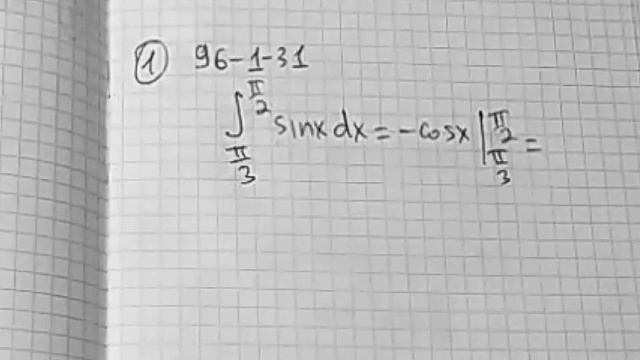 ① 96-1-31
∫_{π/3}^{π/2} sinx dx = -cosx |_{π/3}^{π/2} =